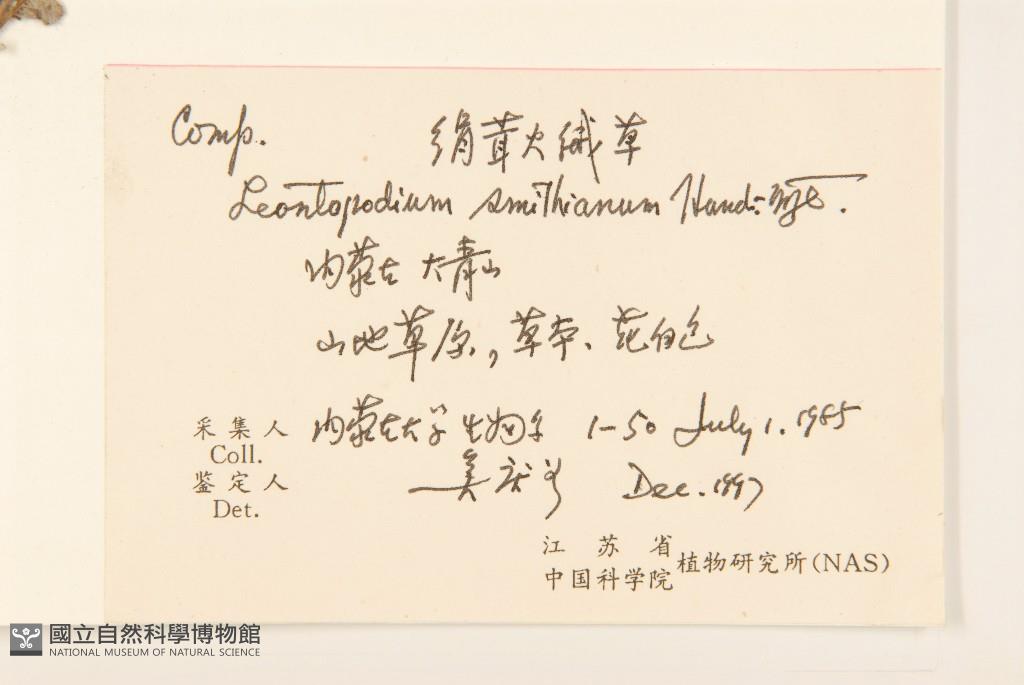 Comp. 绢茸火绒草
Leontopodium smithianum Hand.-Mzt.
内蒙古 大青山
山地草原, 草本、花白色
采集人 内蒙古大学生物系 1-50 July 1. 1985
Coll.
鉴定人 Dec. 1997
Det.
江苏省
中国科学院 植物研究所(NAS)
國立自然科學博物館
NATIONAL MUSEUM OF NATURAL SCIENCE